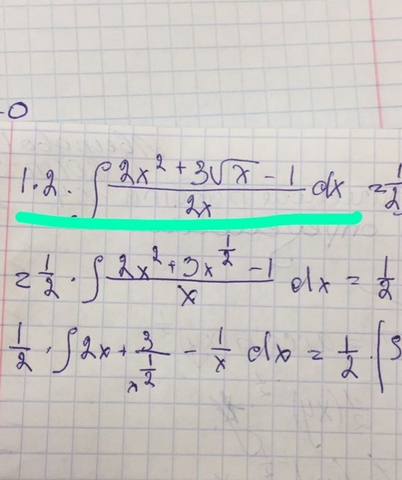 -0
1.2. ∫ (2x² + 3√x - 1)/(2x) dx = 1/2
= 1/2 · ∫ (2x² + 3x^(1/2) - 1)/x dx = 1/2
1/2 · ∫ 2x + 3/x^(1/2) - 1/x dx = 1/2 · (∫